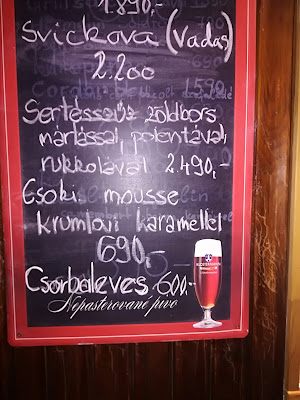 1.890.-
Svickova (Vadas)
2.200
1.590
Sertésszűz zöldbors
mártással, polentával,
rukkolával 2.490,-
Csoki mousse
krumlovi karamellel
690,-
Csorbaleves 600.-
Nepasterované pivo